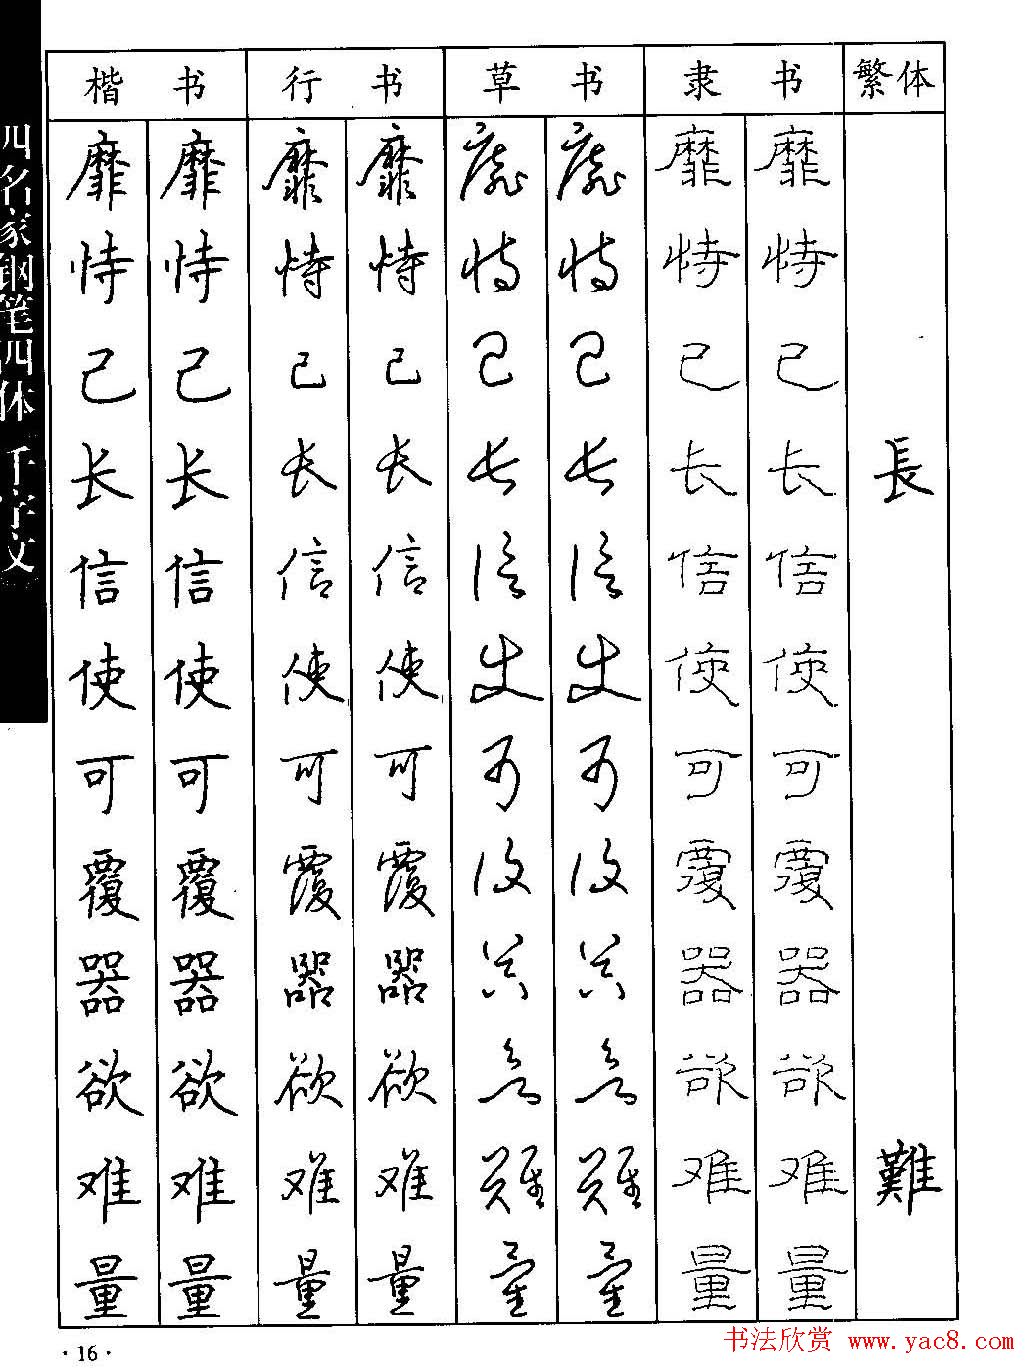 四名家钢笔四体千字文
楷书 行书 草书 隶书 繁体
靡 靡 靡 靡 靡 靡 靡 靡
恃 恃 恃 恃 恃 恃 恃 恃
己 己 己 己 己 己 己 己
长 长 长 长 长 长 长 长 長
信 信 信 信 信 信 信 信
使 使 使 使 使 使 使 使
可 可 可 可 可 可 可 可
覆 覆 覆 覆 覆 覆 覆 覆
器 器 器 器 器 器 器 器
欲 欲 欲 欲 欲 欲 欲 欲
难 难 难 难 難 難 难 难 難
量 量 量 量 量 量 量 量
·16·
书法欣赏 www.yac8.com